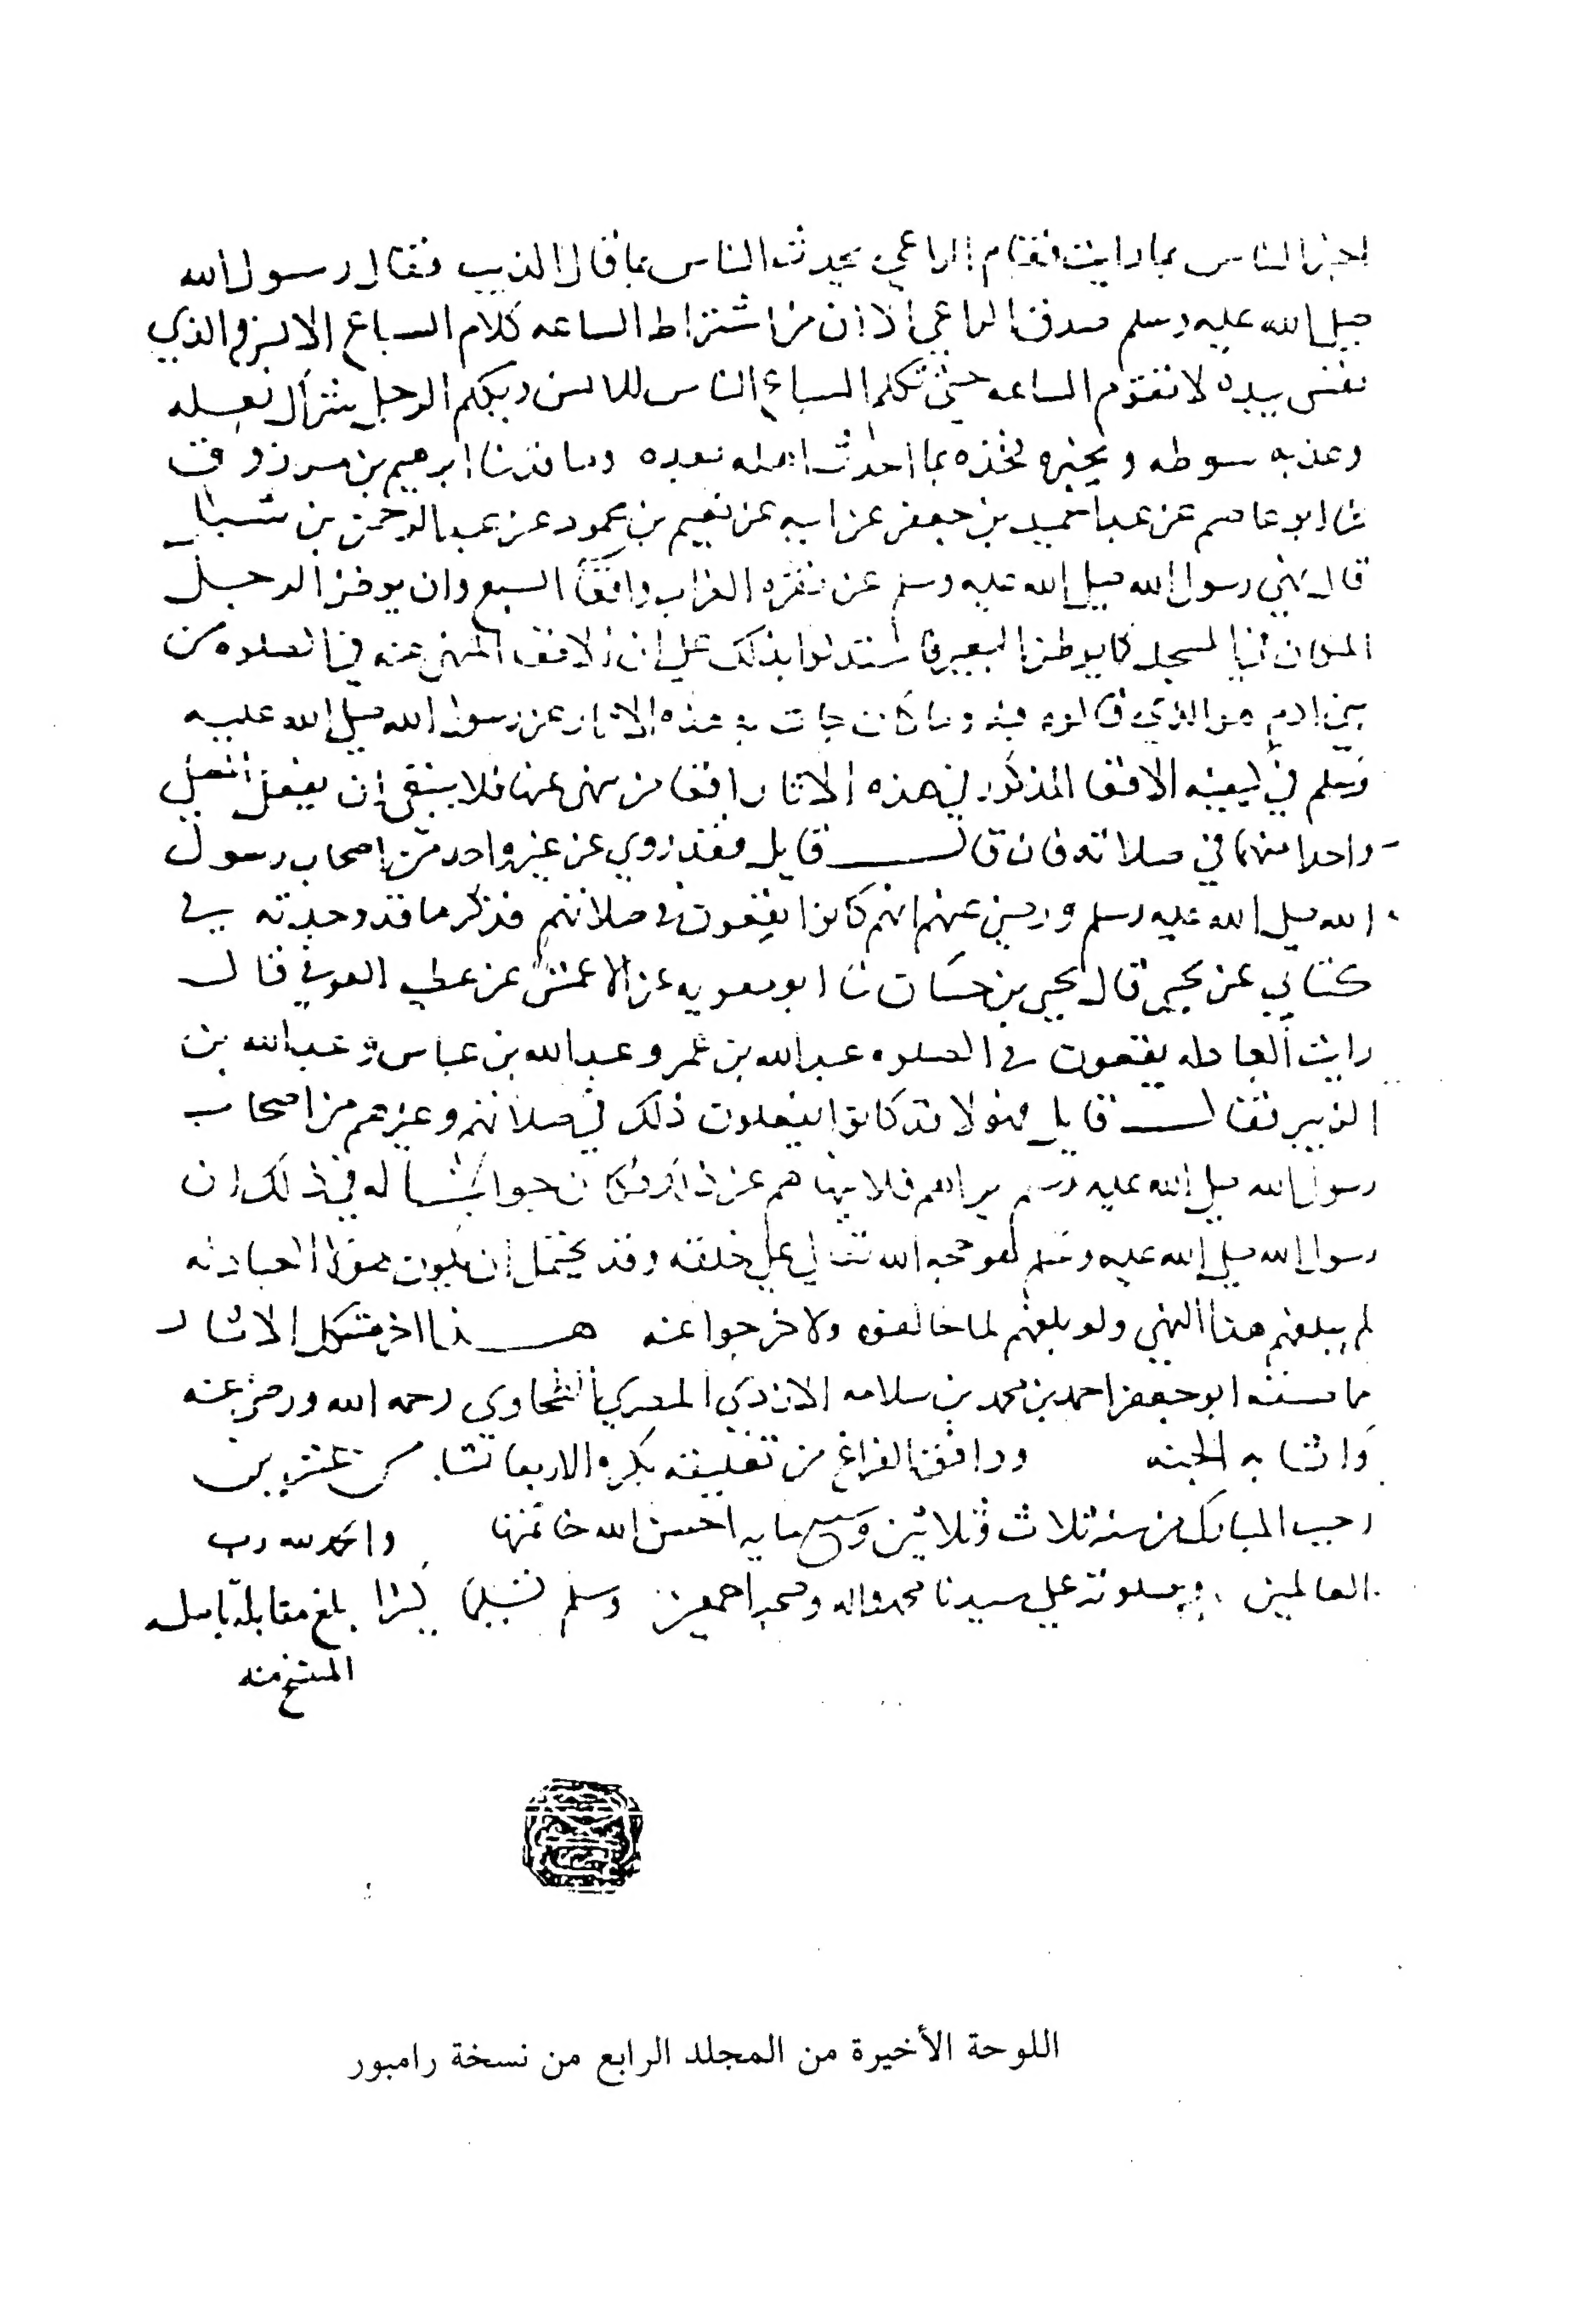 اخبر الناس بما رايت فقام الراعي يحدث الناس بما قال الذيب فقال رسول الله
صلى الله عليه وسلم صدق الراعي الا ان من اشتراط الساعه كلام السباع الانس والذي
نفسي بيده لا تقوم الساعه حتى تكلم السباع الناس ويكلم الرجل شراك نعله
وعذبه سوطه ويخبره فخذه بما احدث اهله بعده وما قد ثنا ابرهيم بن مرزوق
ثنا ابو عاصم عن عبد الحميد بن جعفر عن ابيه عن تميم بن محمود عن عبد الرحمن بن شبل
قال نهى رسول الله صلى الله عليه وسلم عن نقره الغراب واقعا السبع وان يوطن الرجل
المكان في المسجد كما يوطن البعير فاستدلوا بذلك على ان الاقعا المنهى عنه في الصلوه من
بني ادم هو الذي وما كان جات به هذه الاثار عن رسول الله صلى الله عليه
وسلم في الاقعا المذكور في هذه الاثار اقعا من نهى عنها فلا ينبغي ان يفعل المصلي
واحدا منهما في صلاته فان قال قايل فقد روي عن غير واحد من اصحاب رسول
الله صلى الله عليه وسلم ورضي عنهم انهم كانوا يقعون في صلاتهم فذكر ما قد وجدته في
كتابي عن يحيى قال يحيى بن حسان ثنا ابو معويه عن الاعمش عن عطيه العوفي قال
رايت العبادله يقعون في الصلوه عبد الله بن عمر وعبد الله بن عباس وعبد الله بن
الزبير فقال قايل فهولا قد كانوا يفعلون ذلك في صلاتهم وغيرهم من اصحاب
رسول الله صلى الله عليه وسلم يراهم فلا ينهاهم عن ذلك فكان جوابنا له في ذلك ان
رسول الله صلى الله عليه وسلم هو حجه الله تعالى على خلقه وقد يحتمل ان يكون هولا العبادله
لم يبلغهم هذا النهي ولو بلغهم لما خالفوه ولا خرجوا عنه هذا اخر مشكل الاثار
مما صنفه ابو جعفر احمد بن محمد بن سلامه الازدي المصري الطحاوي رحمه الله ورضي عنه
واثابه الجنه ووافق الفراغ من تعليقه بكره الاربعا من عشرين
رجب المبارك من سنه ثلاث وثلاثين وسبع مايه احسن الله خاتمتها والحمد لله رب
العالمين وصلوته على سيدنا محمد واله وصحبه اجمعين وسلم تسليما كثيرا بلغ مقابلة باصله
المنسخ منه
اللوحة الأخيرة من المجلد الرابع من نسخة رامبور